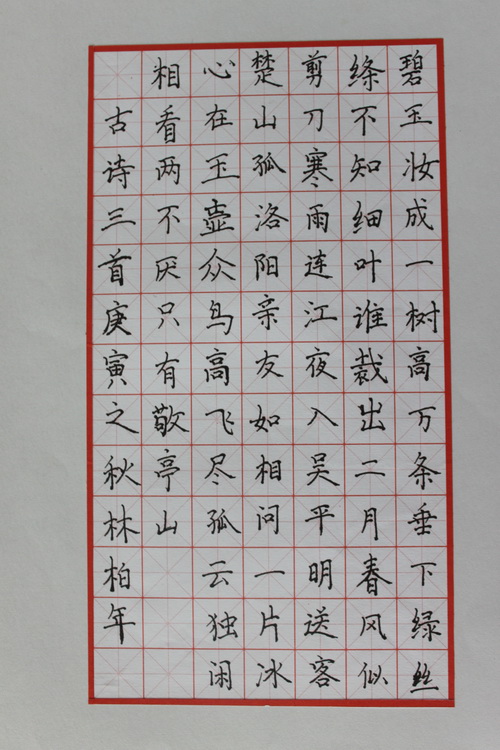 碧玉妆成一树高万条垂下绿丝
绦不知细叶谁裁出二月春风似
剪刀寒雨连江夜入吴平明送客
楚山孤洛阳亲友如相问一片冰
心在玉壶众鸟高飞尽孤云独闲
相看两不厌只有敬亭山
古诗三首庚寅之秋林柏年